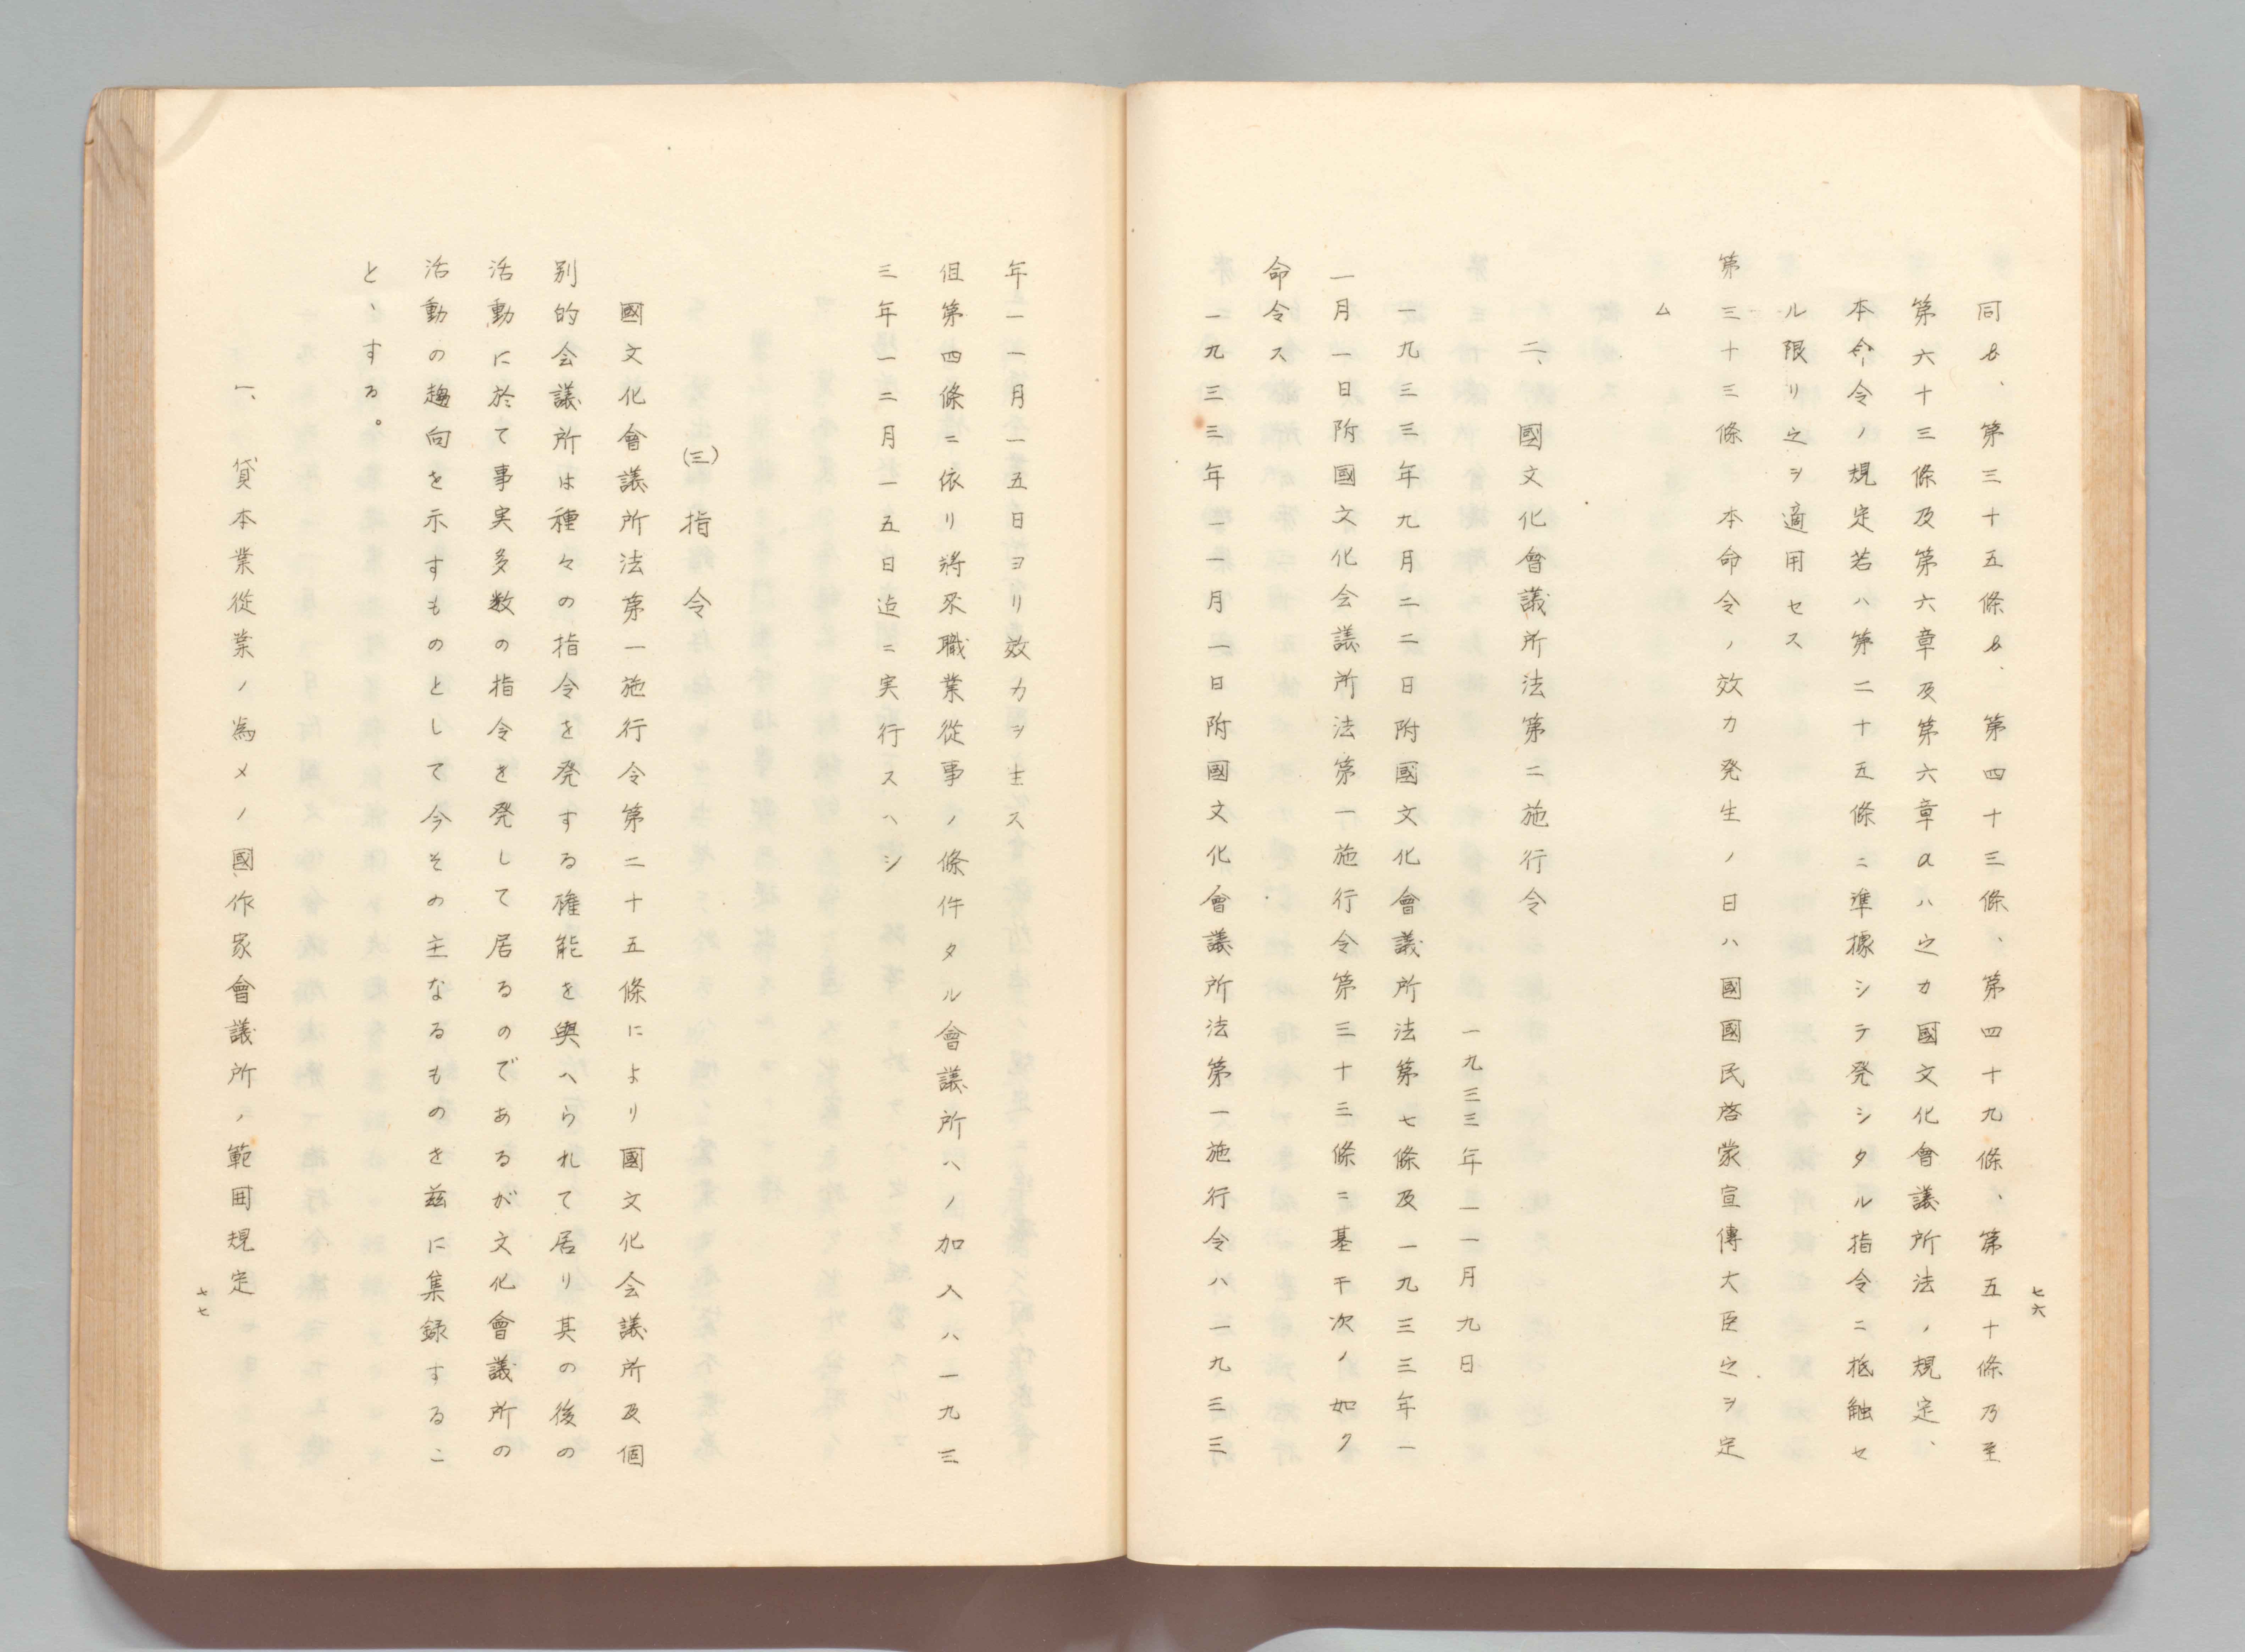 七六
同b、第三十五條b、第四十三條、第四十九條、第五十條乃至
第六十三條及第六章及第六章aハ之カ國文化會議所法ノ規定、
本命令ノ規定若ハ第二十五條ニ準據シテ発シタル指令ニ抵触セ
ル限リ之ヲ適用セス
第三十三條 本命令ノ效力発生ノ日ハ國國民啓蒙宣傳大臣之ヲ定
ム
二、國文化會議所法第二施行令
一九三三年一一月九日
一九三三年九月二二日附國文化會議所法第七條及一九三三年一
一月一日附國文化会議所法第一施行令第三十三條ニ基キ次ノ如ク
命令ス
一九三三年一一月一日附國文化會議所法第一施行令ハ一九三三
年一一月一五日ヨリ效力ヲ生ス
但第四條ニ依リ將來職業從事ノ條件タル會議所ヘノ加入ハ一九三
三年一二月一五日迄ニ実行スヘシ
(三)指令
國文化會議所法第一施行令第二十五條により國文化会議所及個
別的会議所は種々の指令を発する権能を與へられて居り其の後の
活動に於て事実多数の指令を発して居るのであるが文化會議所の
活動の趨向を示すものとして今その主なるものを茲に集録するこ
と、する。
一、貸本業從業ノ為メノ國作家會議所ノ範囲規定
七七